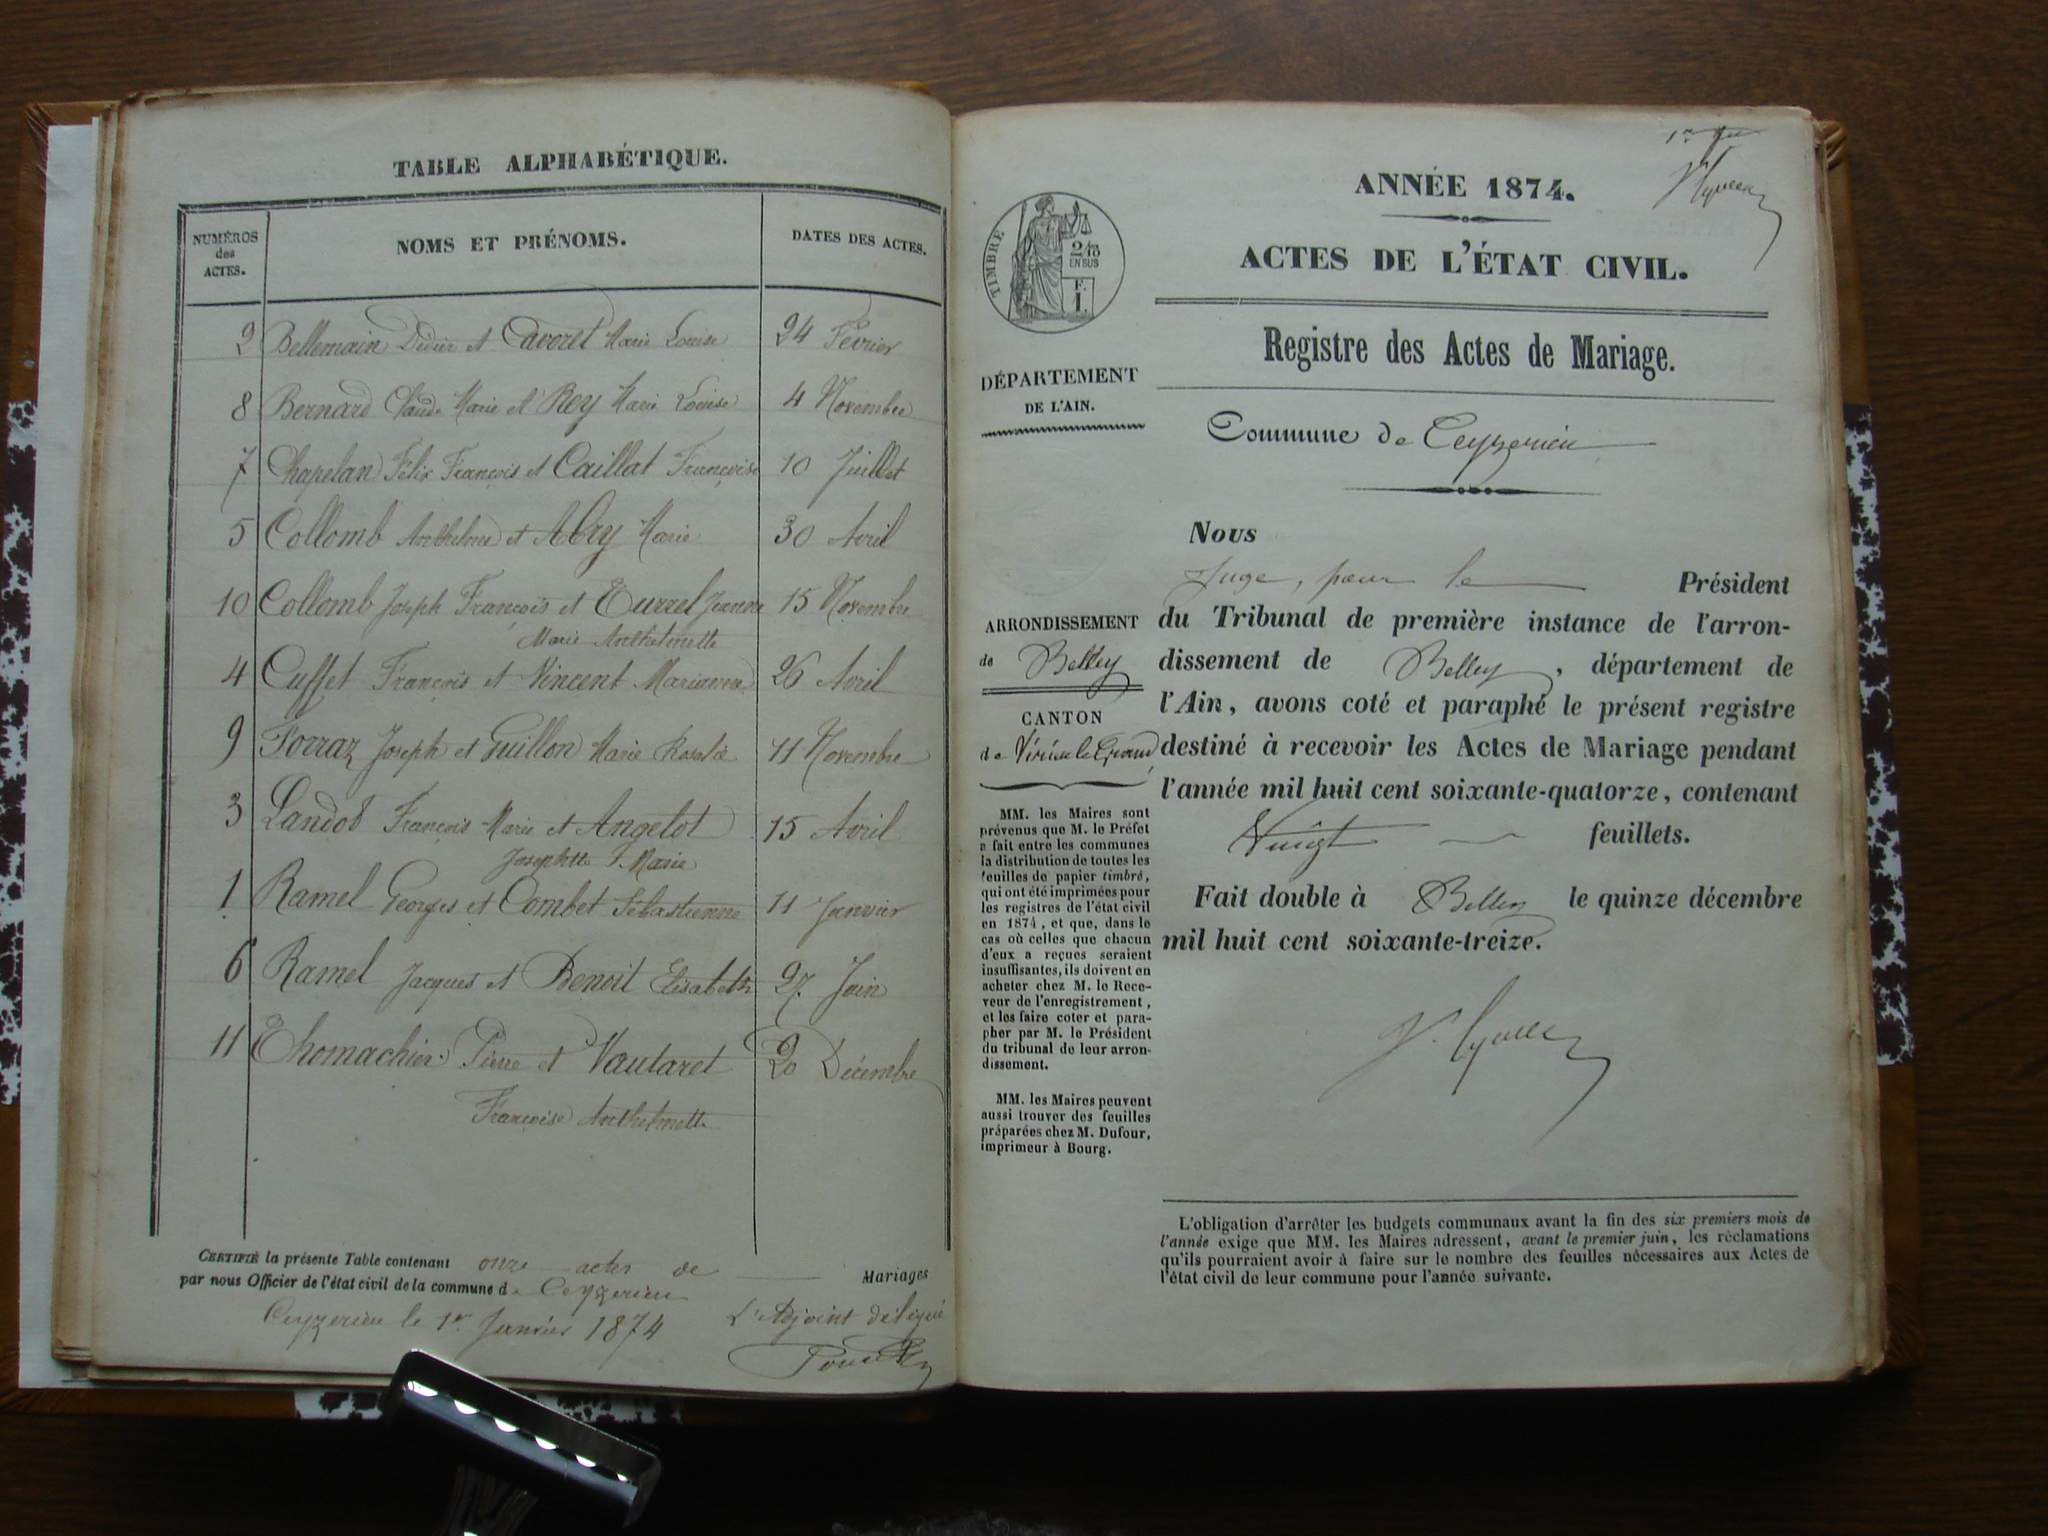 TABLE ALPHABÉTIQUE.
NUMÉROS des ACTES.
NOMS ET PRÉNOMS.
DATES DES ACTES.
2 Bellemain Didier et Cavoret Marie Louise 24 Février
8 Bernard Claude Marie et Rey Marie Louise 4 Novembre
7 Chapelan Félix François et Caillat Françoise 10 Juillet
5 Collomb Anthelme et Abry Marie 30 Avril
10 Collomb Joseph François et Turrel Jeanne 15 Novembre
Marie Anthelmette
4 Cuffet François et Vincent Marianne 26 Avril
9 Forraz Joseph et Guillon Marie Rosalie 11 Novembre
3 Landoz François Marie et Angelot 15 Avril
Josephte Marie
1 Ramel Georges et Combet Sébastienne 11 Janvier
6 Ramel Jacques et Benoit Elisabeth 27 Juin
11 Thomachier Pierre et Vautaret 20 Décembre
Françoise Anthelmette
CERTIFIÉ la présente Table contenant onze actes de Mariages
par nous Officier de l'état civil de la commune de Ceyzerieu
Ceyzerieu le 1er Janvier 1874 L'Adjoint délégué
ANNÉE 1874.
ACTES DE L'ÉTAT CIVIL.
Registre des Actes de Mariage.
TIMBRE
2/10
EN SUS
F.
1.
DÉPARTEMENT
DE L'AIN.
Commune de Ceyzerieu
ARRONDISSEMENT
de Belley
CANTON
de Virieu le Grand
MM. les Maires sont
prévenus que M. le Préfet
a fait entre les communes
la distribution de toutes les
feuilles de papier timbré,
qui ont été imprimées pour
les registres de l'état civil
en 1874, et que, dans le
cas où celles que chacun
d'eux a reçues seraient
insuffisantes, ils doivent en
acheter chez M. le Rece-
veur de l'enregistrement,
et les faire coter et para-
pher par M. le Président
du tribunal de leur arron-
dissement.
MM. les Maires peuvent
aussi trouver des feuilles
préparées chez M. Dufour,
imprimeur à Bourg.
Nous
Juge, pour le Président
du Tribunal de première instance de l'arron-
dissement de Belley, département de
l'Ain, avons coté et paraphé le présent registre
destiné à recevoir les Actes de Mariage pendant
l'année mil huit cent soixante-quatorze, contenant
Vingt feuillets.
Fait double à Belley le quinze décembre
mil huit cent soixante-treize.
L'obligation d'arrêter les budgets communaux avant la fin des six premiers mois de
l'année exige que MM. les Maires adressent, avant le premier juin, les réclamations
qu'ils pourraient avoir à faire sur le nombre des feuilles nécessaires aux Actes de
l'état civil de leur commune pour l'année suivante.